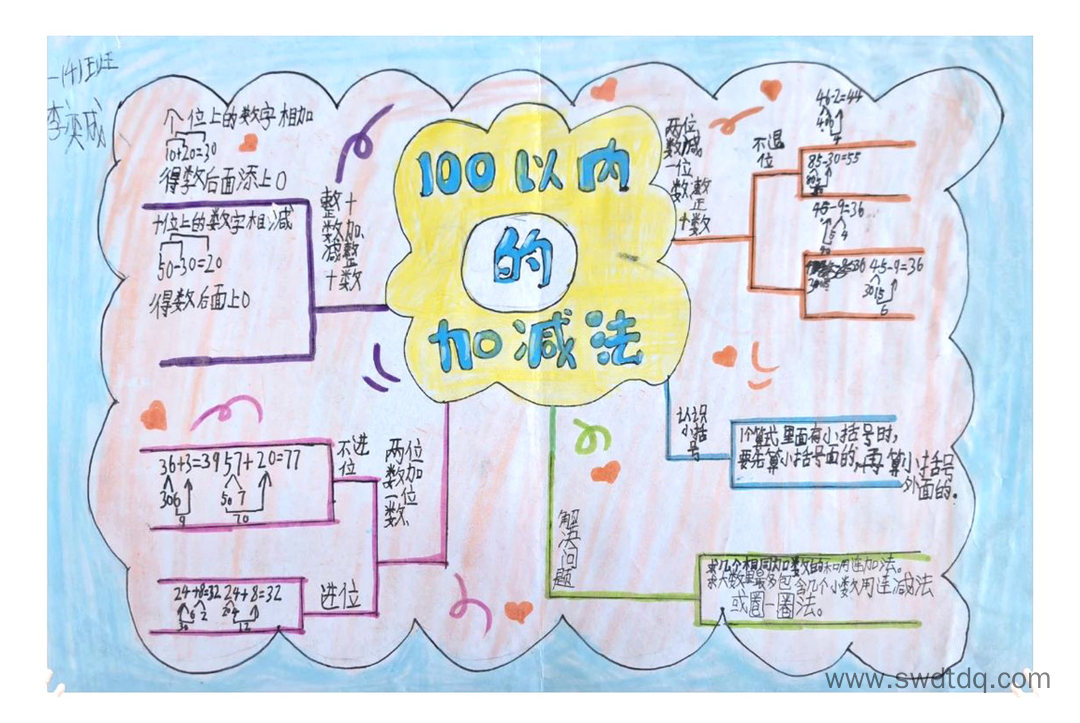 一(4)班
李奕成
100以内
的
加减法
个位上的数字相加
10+20=30
得数后面添上0
十位上的数字相减
50-30=20
得数后面上0
整十
数加
减整
十数
两位
数减
一位
数、整
十数
不退
位
46-2=44
85-30=55
45-9=36
45-9=36
30 15
6
认识
小括
号
1个算式里面有小括号时,
要先算小括号面的,再算小括号
外面的。
解
决
问
题
求几个相同加数的和用连加法。
求大数里最多包含几个小数用连减法
或圈一圈法。
两位
数加
一位
数
不进
位
36+3=39 57+20=77
30 6 50 7
9 70
进位
24+8=32 24+8=32
6 2
30 12
www.swdtdq.com